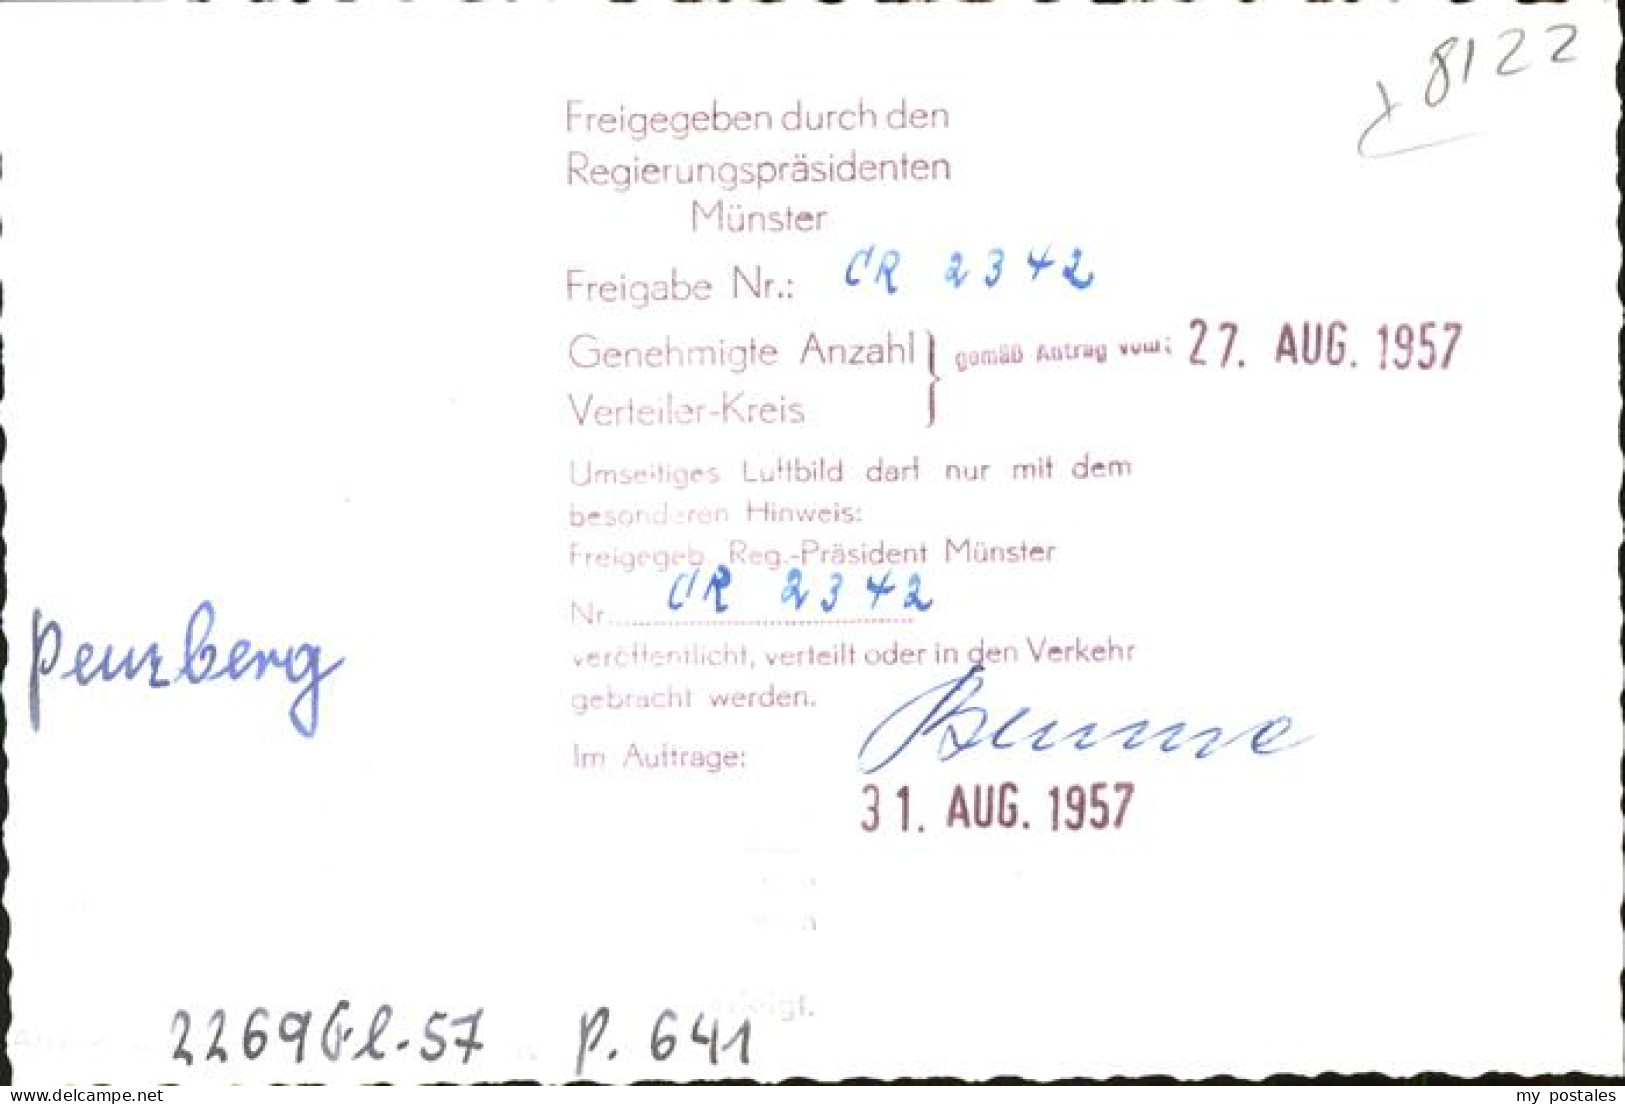 8122
Freigegeben durch den
Regierungspräsidenten
Münster
Freigabe Nr.: CR 2342
Genehmigte Anzahl } gemäß Antrag vom: 27. AUG. 1957
Verteiler-Kreis
Umseitiges Luftbild darf nur mit dem
besonderen Hinweis:
Freigegeb. Reg.-Präsident Münster
Nr. CR 2342
veröffentlicht, verteilt oder in den Verkehr
gebracht werden.
Im Auftrage:
31. AUG. 1957
Penzberg
2269 Fl-57 P. 641
www.delcampe.net
my postales